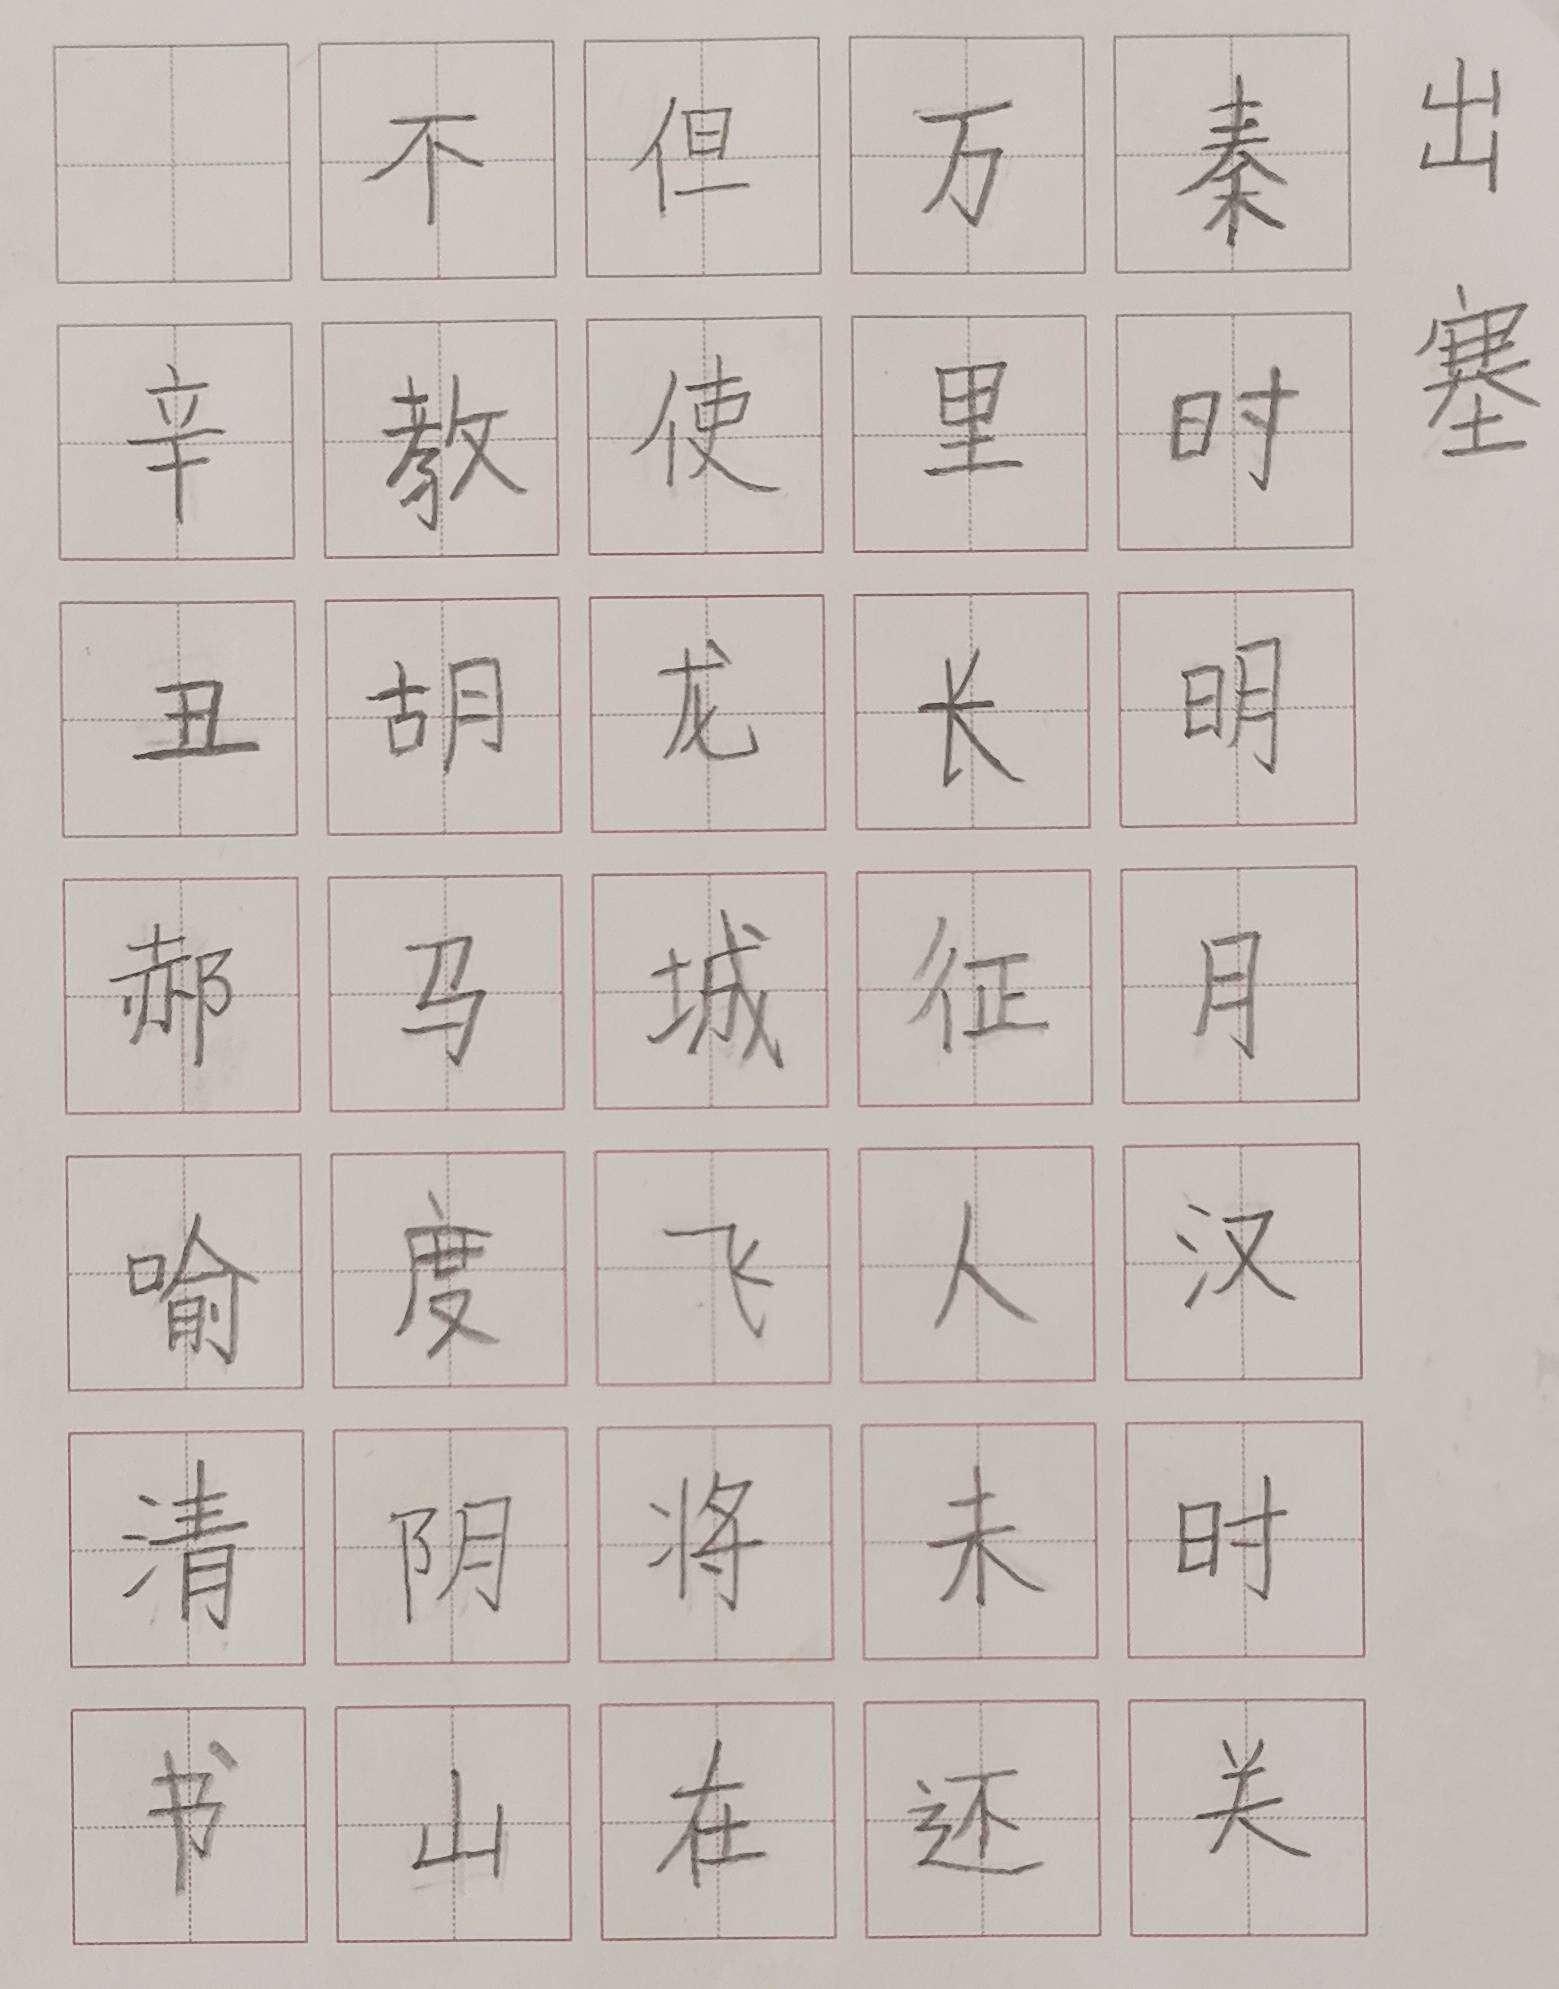 出塞
秦时明月汉时关
万里长征人未还
但使龙城飞将在
不教胡马度阴山
辛丑郝喻清书